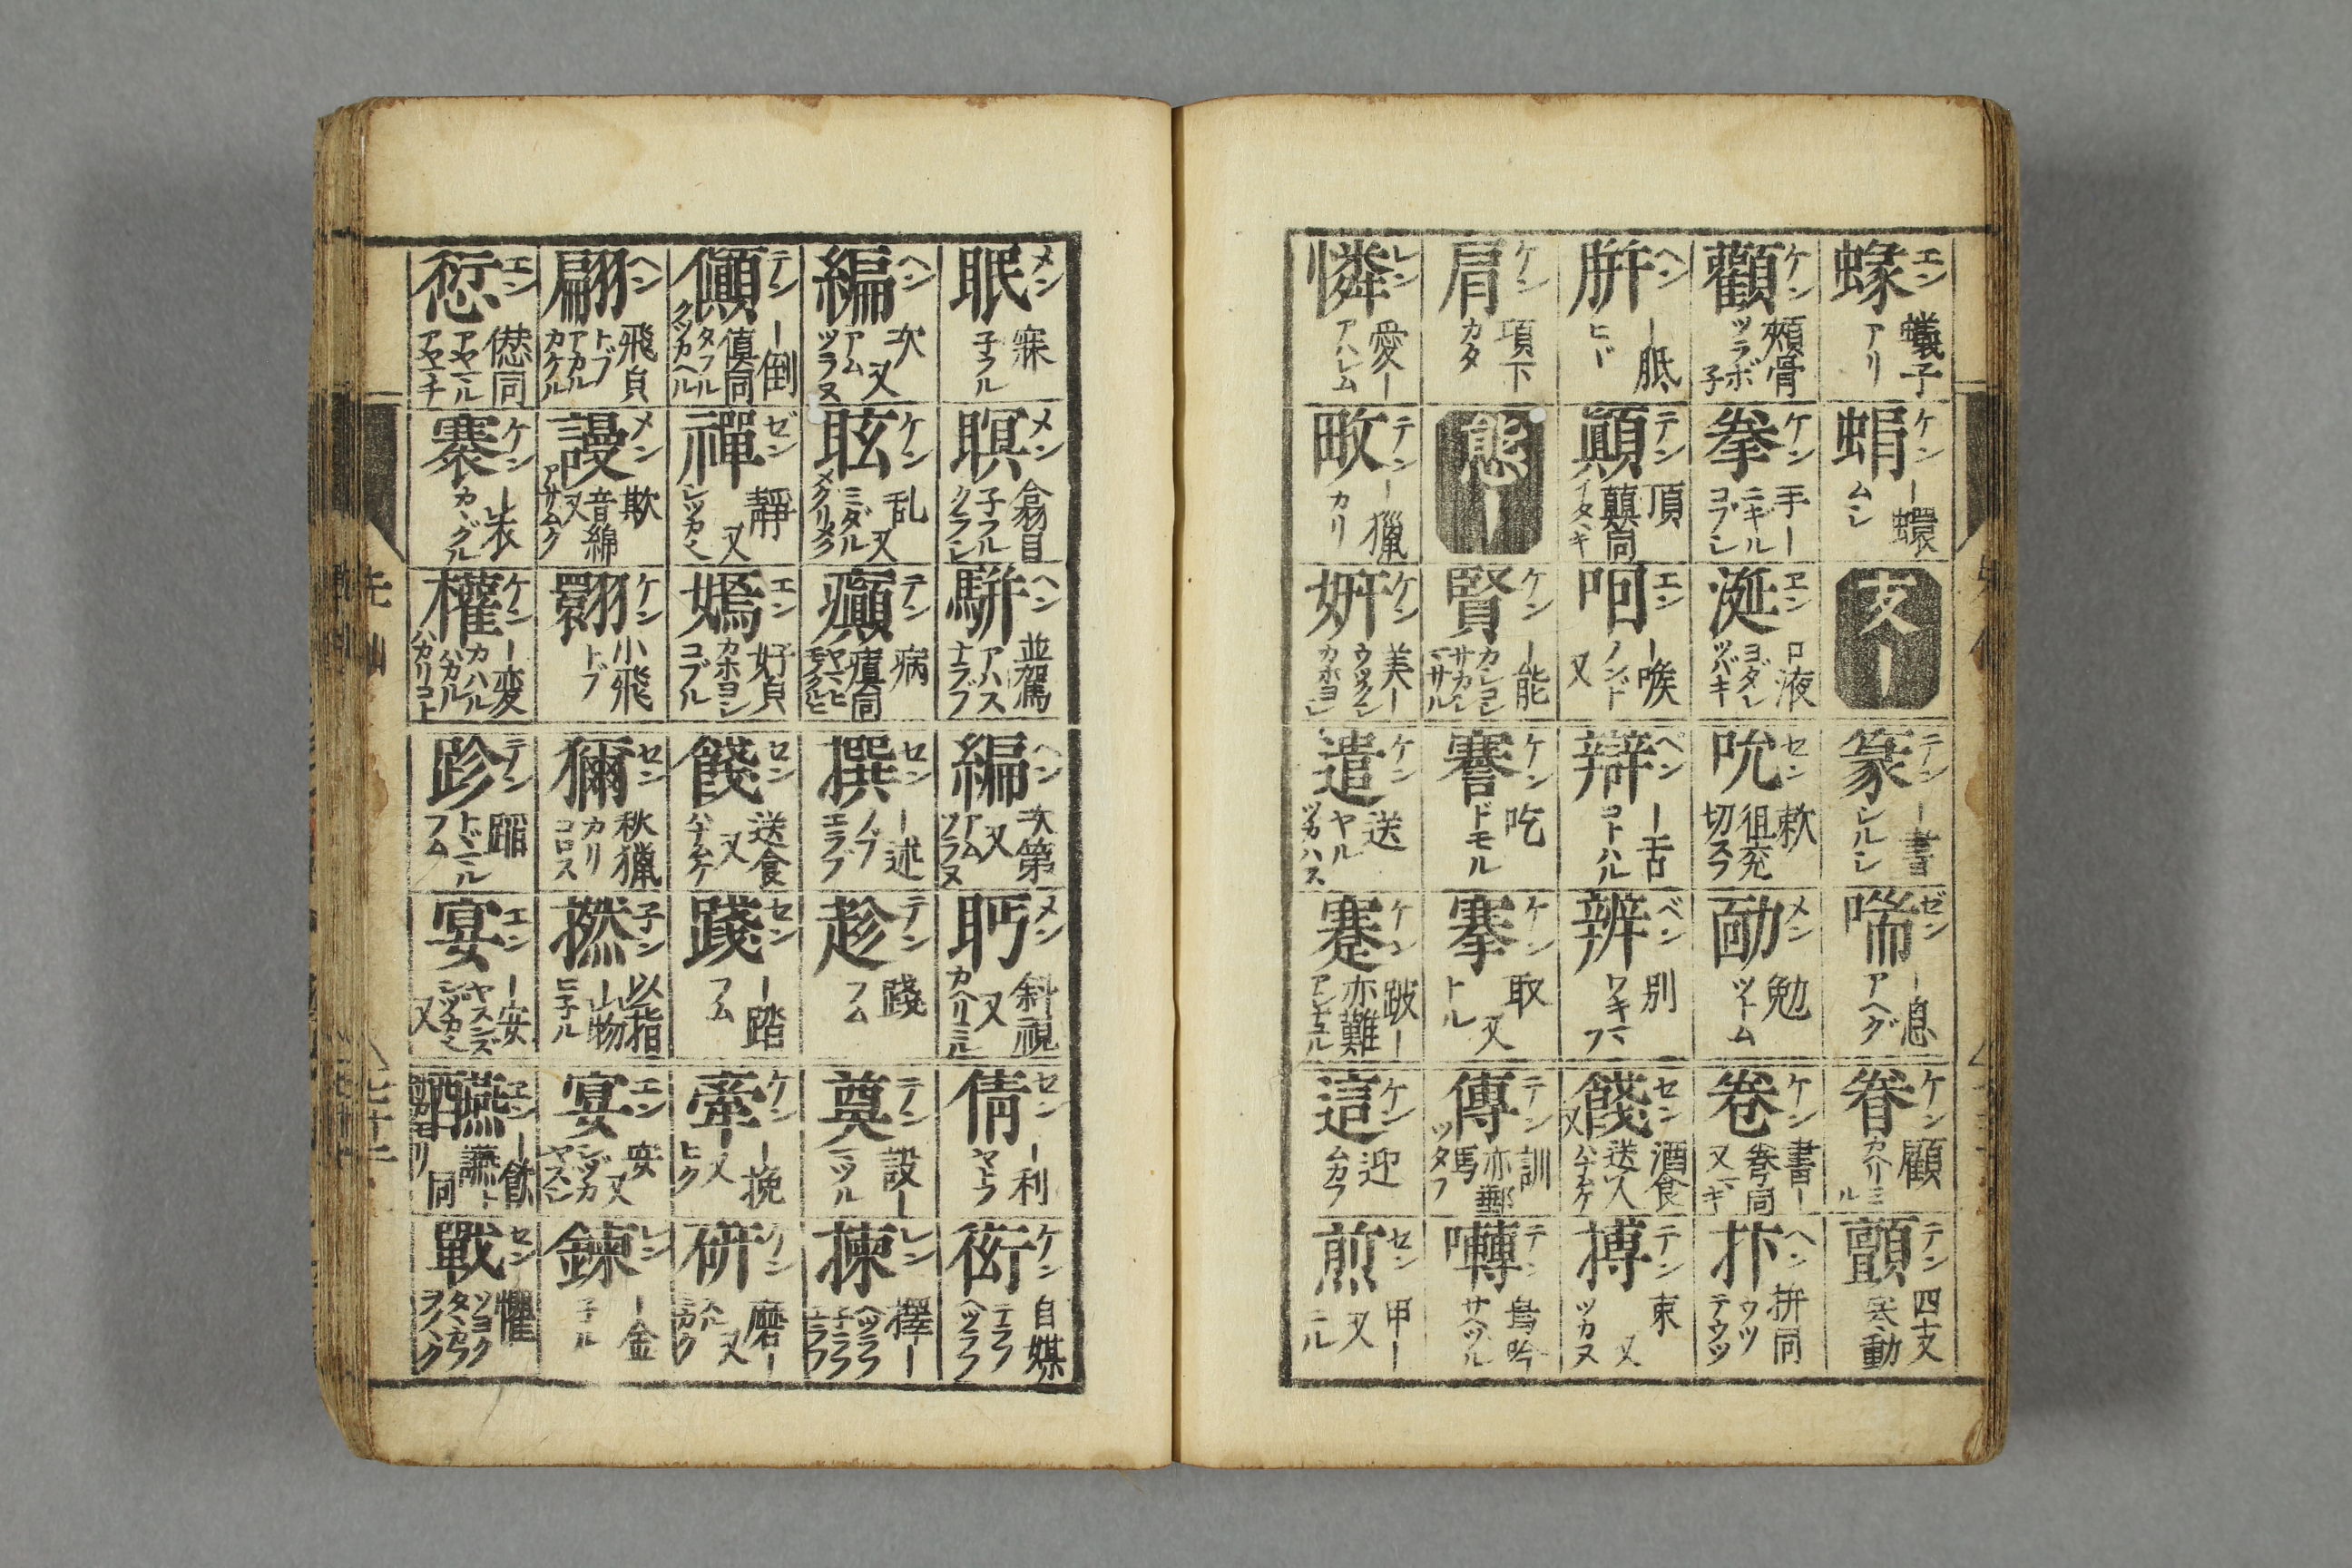 蝝 エン 蟻子 アリ
蜎 ケン ー蠉 ムシ
支ー
篆 テン ー書 シルシ
喘 ゼン ー息 アヘグ
眷 ケン 顧 カヘリミル
顫 テン 四支寒動
顴 ケン 頬骨 ツラボ子
拳 ケン 手ー ニキル コブシ
涎 エン 口液 ヨダレ ツバキ
吮 セン 欶 徂兖切 スフ
勔 メン 勉 ツトム
卷 ケン 書ー 巻同 又マキ
抃 ヘン 拚同 ウツ テウツ
腁 ヘン ー胝 ヒヾ
顛 テン 頂 顚同 イタヽキ
咽 エン ー喉 ノンド 又
辯 ベン ー舌 コトハル
辨 ベン 別 ワキマフ
餞 セン 酒食送人 ハナムケ 又
摶 テン 束 又 ツカヌ
肩 ケン 項下 カタ
態ー
賢 ケン ー能 カシコシ サカシ マサル
謇 ケン 吃 ドモル
搴 ケン 取 又 トル
傳 テン 訓 亦郵馬 ツタフ
囀 テン 鳥吟 サヘヅル
憐 レン 愛ー アハレム
畋 テン ー獵 カリ
妍 ケン 美ー ウツクシ カホヨシ
遣 ケン 送 ヤル ツカハス
蹇 ケン 跛ー 亦難 アシナヘ
這 ケン 迎 ムカフ
煎 セン 甲ー 又 ニル
眠 メン 寐 子フル
瞑 メン 翕目 子フル クラシ
駢 ヘン 並駕 アハス ナラブ
編 ヘン 次第 又 アム ツラヌ
眄 メン 斜視 又 カヘリミル
倩 セン ー利 ヤトフ
衒 ケン 自媒 テラフ ヘツラフ
編 ヘン 次 又 アム ツラヌ
眩 ケン 乱 又 ミダル メクリメク
癲 テン 病 瘨同
撰 セン ー述 ノブ エラブ
趁 テン 踐 フム
奠 テン 設ー マツル
揀 レン 擇ー エラフ
傎 テン ー倒 傎同 タフル クツカヘル
禪 ゼン 靜 又 シツカ
嫣 エン 好皃 カホヨシ コブル
餞 セン 送食 又 ハナムケ
踐 セン ー踏 フム
牽 ケン ー挽 又 ヒク
研 ケン 磨ー 又 ミガク
翩 ヘン 飛皃 トブ アカル カケル
謾 メン 欺 音綿 又 アサムク
翾 ケン 小飛 トブ
獮 セン 秋獵 カリ コロス
撚 子ン 以指ー物 ヒ子ル
宴 エン 安 又 シヅカ ヤスシ
鍊 レン ー金 子ル
愆 エン 㒅同 アヤマル アヤマチ
褰 ケン ー衣 カヽグル
權 ケン ー変 カハル ハカル ハカリコト
跈 テン 蹈 トヾマル フム
宴 エン ー安 ヤスンズ シツカ 又
醼 エン ー飲 讌ー同
戰 セン 懼 ツヨク タヽカフ ヲノヽク